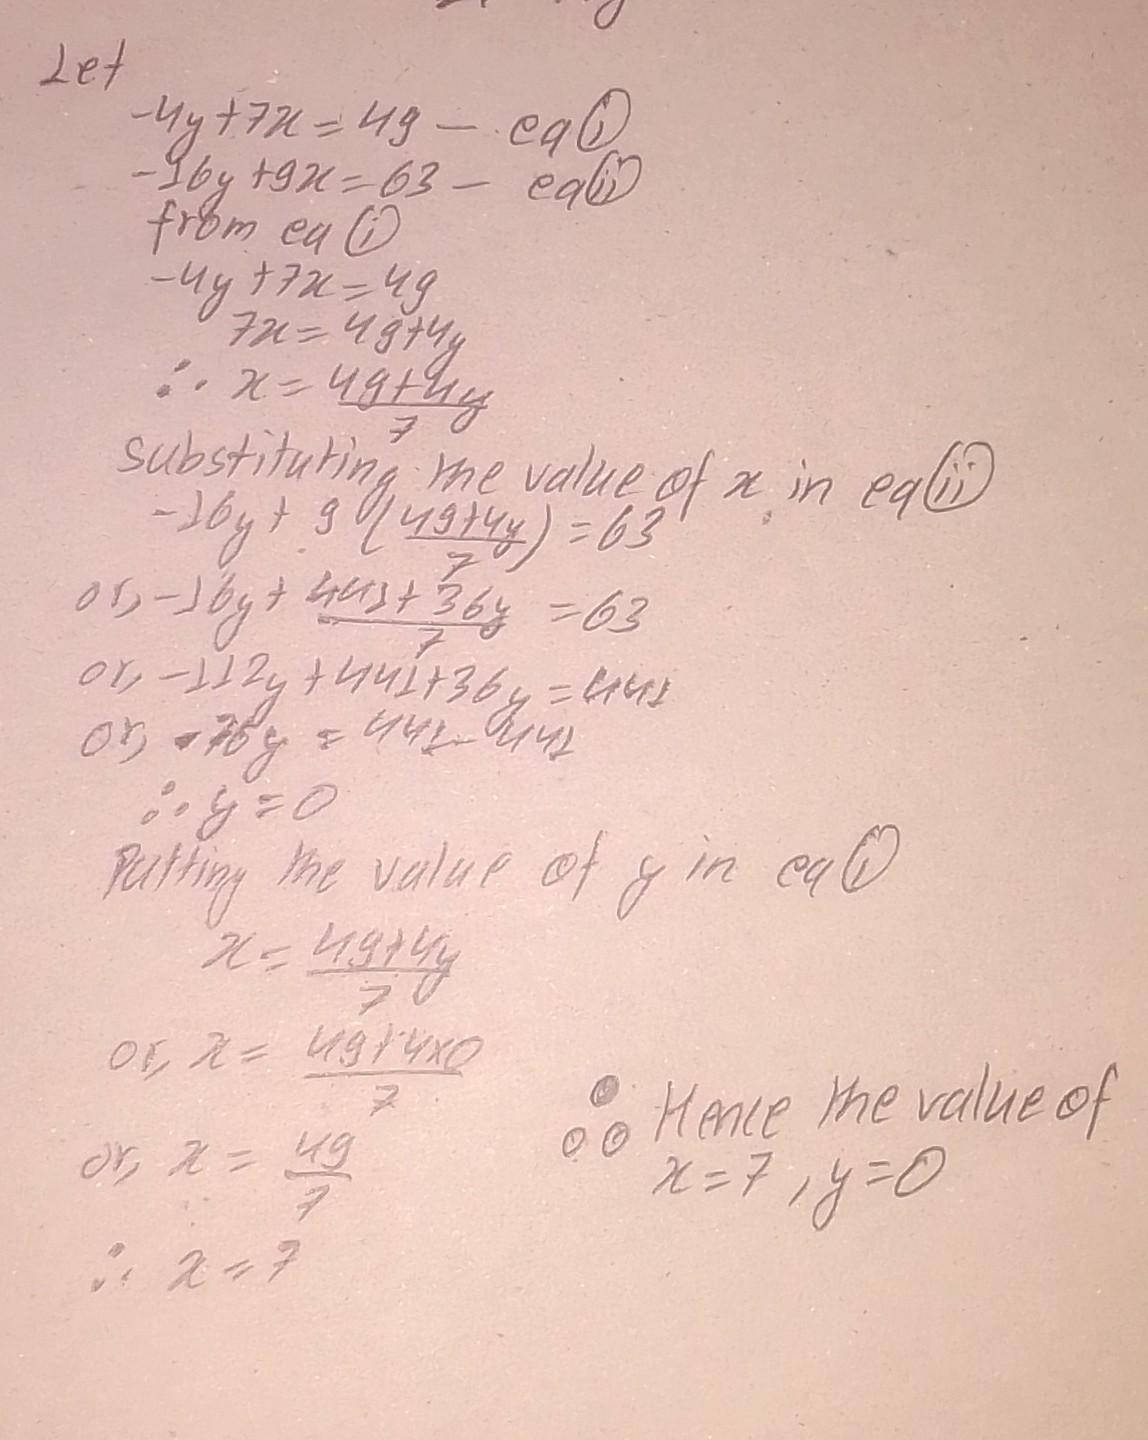 Let
-4y+7x=49 - eq (i)
-16y+9x=63 - eq (ii)
from eq (i)
-4y+7x=49
7x=49+4y
∴ x=49+4y/7
substituting the value of x in eq (ii)
-16y+9(49+4y/7)=63
or, -16y+441+36y/7=63
or, -112y+441+36y=441
or, -76y=441-441
∴ y=0
Putting the value of y in eq (i)
x=49+4y/7
or, x=49+4x0/7
or, x=49/7
∴ x=7
∴ Hence the value of
x=7, y=0